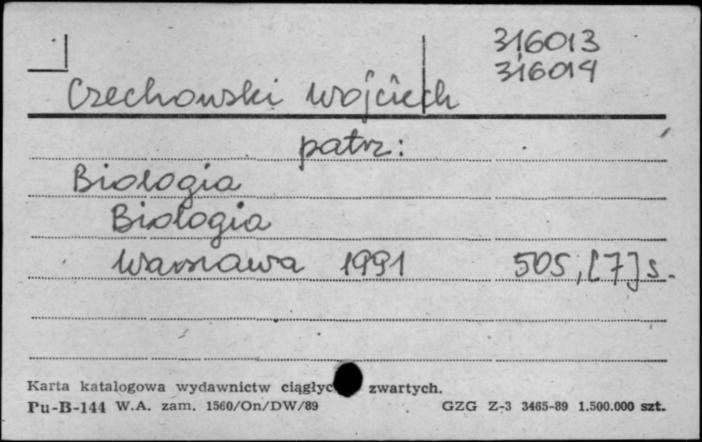 316013
316014
Czechowski Wojciech
patrz:
Biologia
Biologia
Warszawa 1991 505,[7]s.
Karta katalogowa wydawnictw ciągłyc zwartych.
Pu-B-144 W.A. zam. 1560/On/DW/89 GZG Z-3 3465-89 1.500.000 szt.